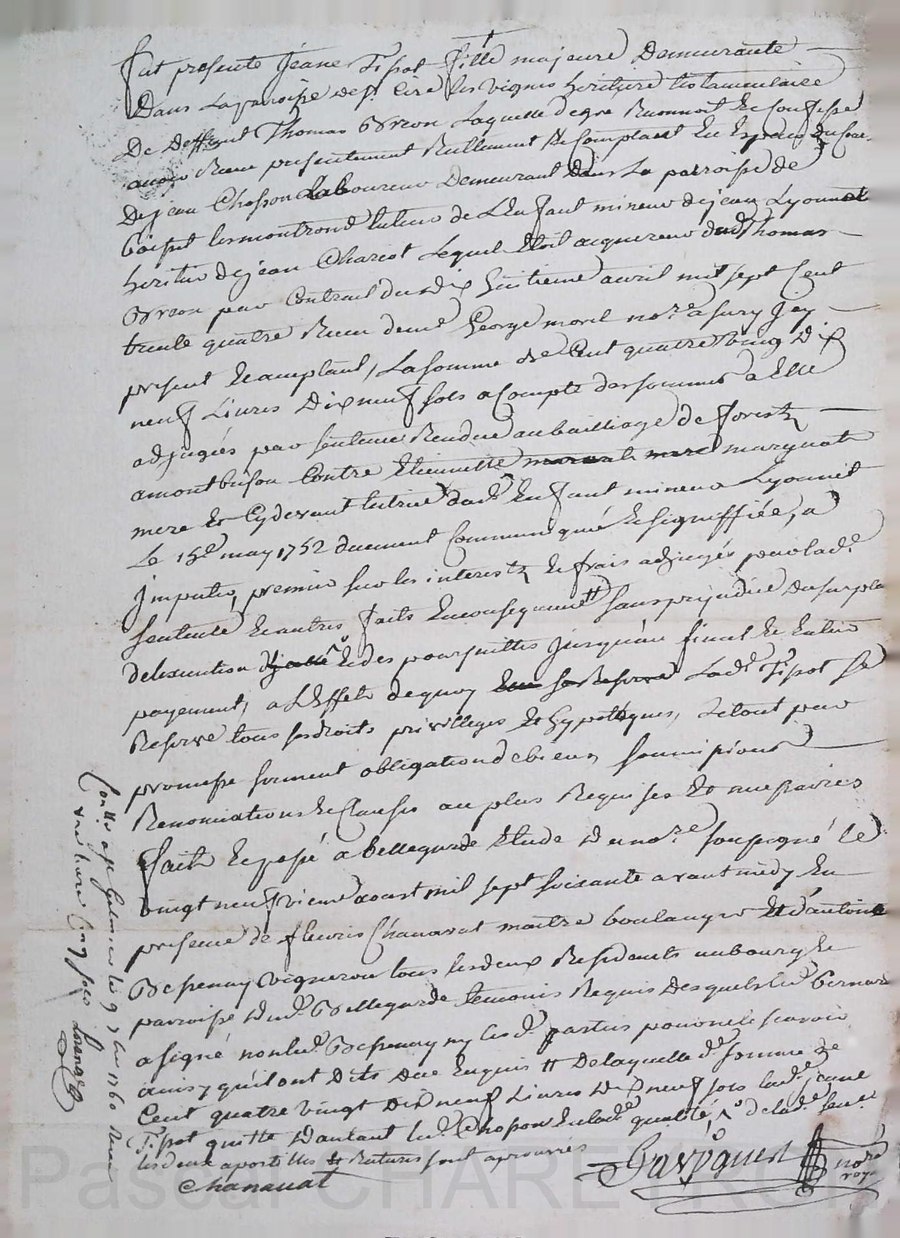 fut presente Jeane Tipot fille majeure Demeurante
Dans La paroise de st. Ciré les vignes heritiere testamentaire
De Deffunt Thomas Orvon Laquelle de gre Reconnoit et Confesse
avoir Receu presentement Reellement et Comptant En Especes du Cour
De jean Chosson Laboureur Demeurant Dans La parroise de
Boisset lesmontrond tuteur de L'Enfant mineur de jean Lyonnet
heritier de jean Chariot Lequel Etoit acquereur dud. Thomas
Orvon par Contrat du dix huitieme avril mil sept Cent
trente quatre Receu devt. George morel nore. a sury Icy
present Et acceptant, La somme de Cent quatre vingt Dix
neuf Livres Dix neuf sols a Compte des sommes a Elle
adjugées par sentence Rendue au bailliage de forest
a montbrison Contre Etiennette marquat
mere Et Cydevant tutrice dud. Enfant mineur Lyonnet
Le 15e. may 1752 duement Communiqué Et signiffiée, a
Imputer, premier sur les interests Et frais adjugés par lad.
sentence Et autres faits En consequence sans prejudice du surplus
de lexecution Et des poursuittes jusqu'au final Et Entier
payement, a L'Effet de quoy Lad. Tipot se
Reserve tous ses droits privilleges Et hypotèques, Et tout par
promesse serment obligation de biens soumissions
Renonciations Et Clauses au plus Requises Et necessaires
fait Et passé a bellegarde Etude du nore. soussigné le
vingt neufvieme aoust mil sept soixante avant midy En
presence de fleuris Chanavat maitre boulanger Et d'antoine
vigneron tous les deux Residants au bourg Et
parroisse dud. Bellegarde temoins Requis Desquels led.
a signé non led. ny lesd. parties pour ne le scavoir
ainsy qu'ils ont Dits De Enquis De laquelle de. somme de
Cent quatre vingt Dix neuf Livres Dix neuf sols lad. jeane
Tipot quitte D'autant led. Chosson En lad. qualité, de lad. sen.
les deux apostilles Et Ratures sont aprouvées
Chanavat
nore
roy.
Conllé a st Galmier le 9 7bre 1760 Receu
une livre cinq sols
Pascal CHARETTON